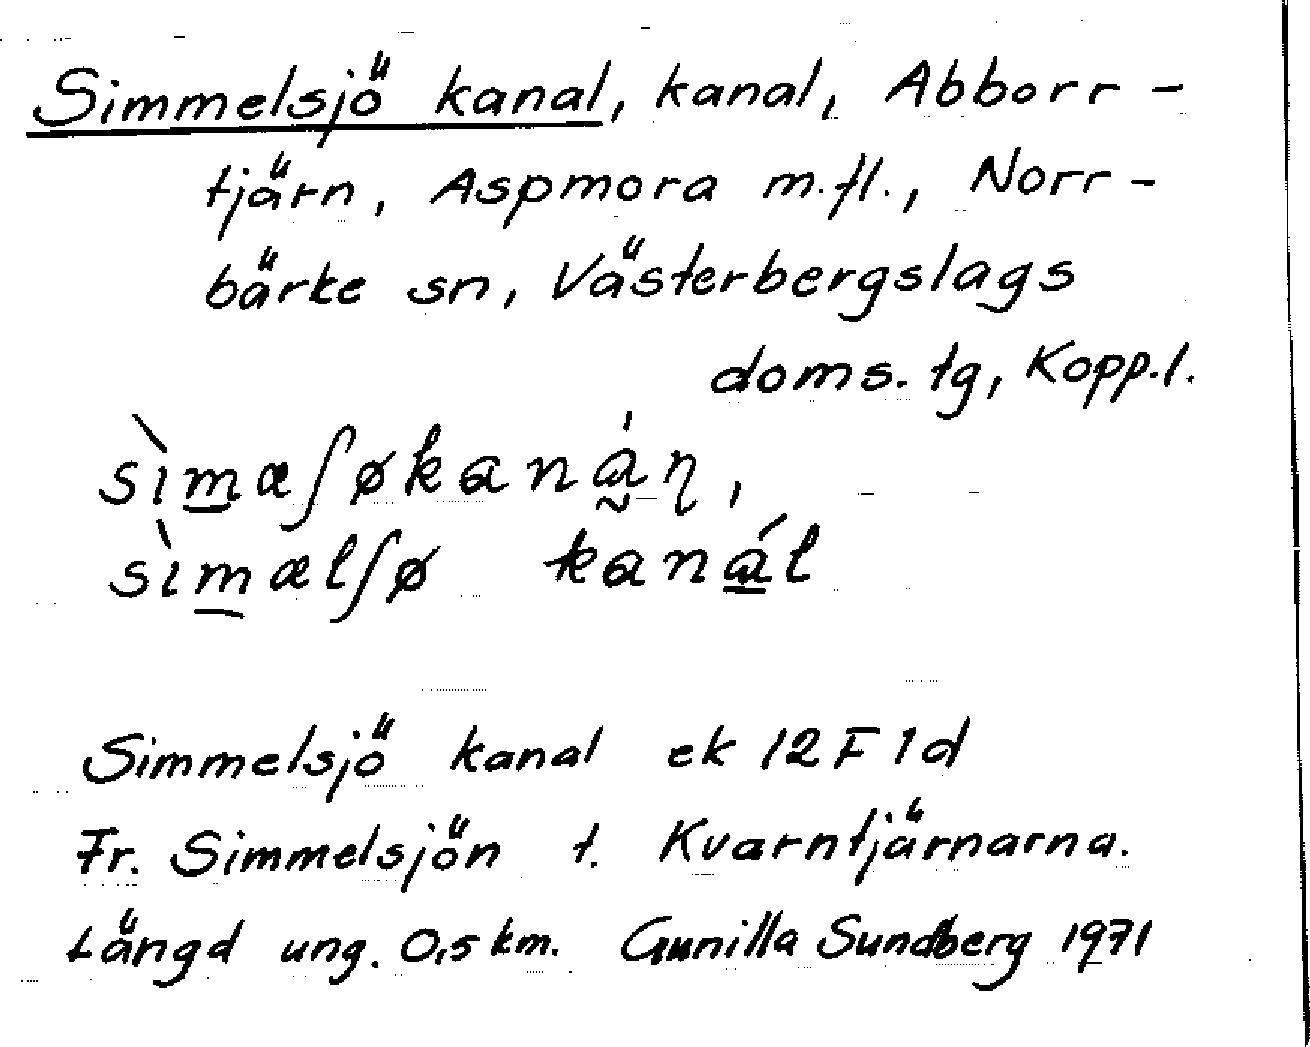 Simmelsjö kanal, kanal, Abborr-
tjärn, Aspmora m.fl., Norr-
bärke sn, Västerbergslags
doms. tg, Kopp.l.
sìmæʃøkanáŋ,
sìmælʃø kanál
Simmelsjö kanal ek 12F1d
Fr. Simmelsjön t. Kvarntjärnarna.
Längd ung. 0,5 km. Gunilla Sundberg 1971